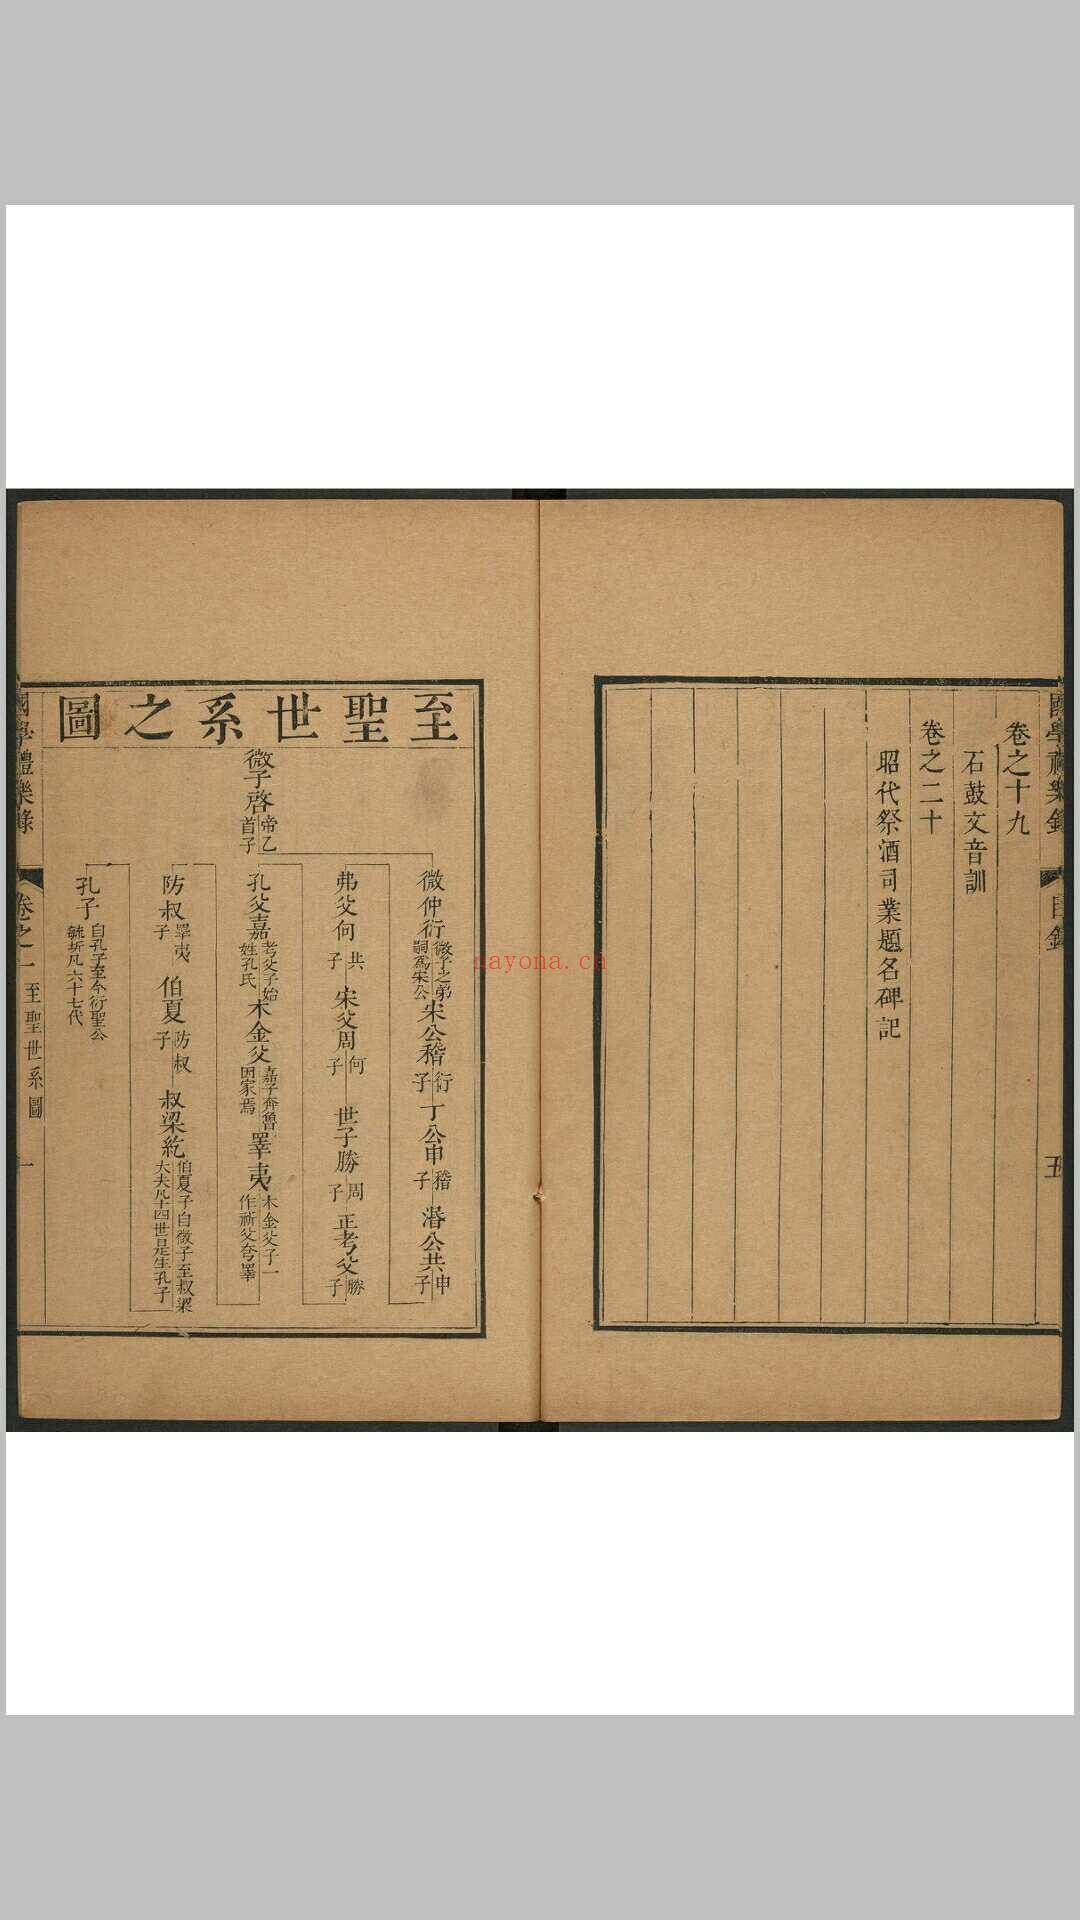 國學禮樂錄
目錄
五
卷之十九
石鼓文音訓
卷之二十
昭代祭酒司業題名碑記
nayona.cn
至聖世系之圖
微子啓 帝乙首子
微仲衍 微子之弟嗣為宋公 宋公稽 衍子 丁公申 稽子 湣公共 申子
弗父何 共子 宋父周 何子 世子勝 周子 正考父 勝子
孔父嘉 考父子始姓孔氏 木金父 嘉子奔魯因家焉 睪夷 木金父子一作祈父夸睪
防叔 睪夷子 伯夏 防叔子 叔梁紇 伯夏子自微子至叔梁大夫凡十四世是生孔子
孔子 自孔子至今衍聖公毓圻凡六十七代
國學禮樂錄
卷之一
至聖世系圖
一